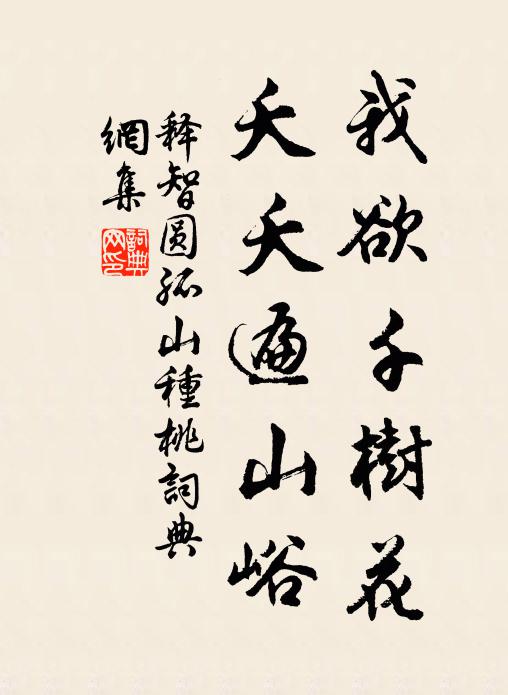 我欲千樹花
夭夭遍山峪
释智圆孤山種桃詞典
網集
詞典
网印